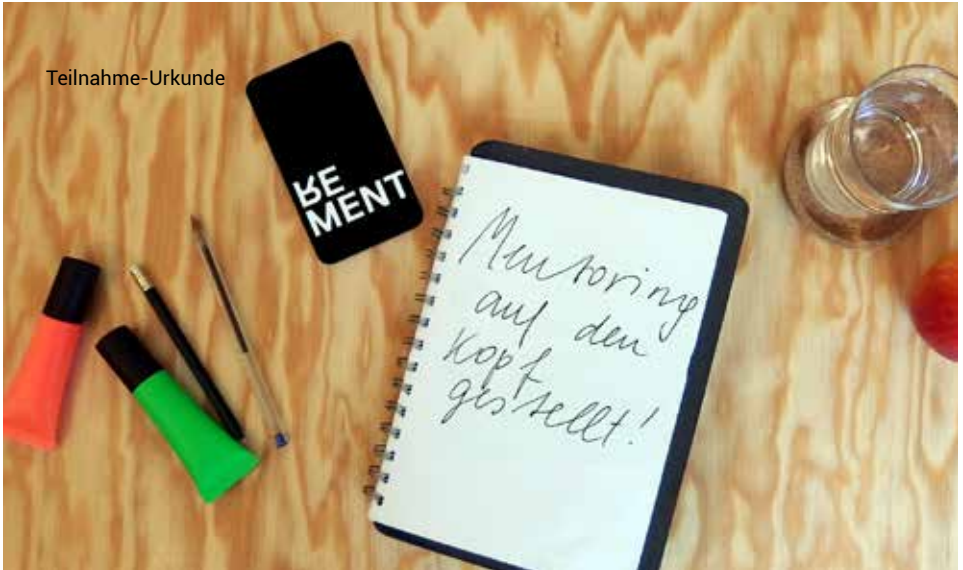 Teilnahme-Urkunde
RE
MENT
Mentoring
auf den
Kopf
gestellt!